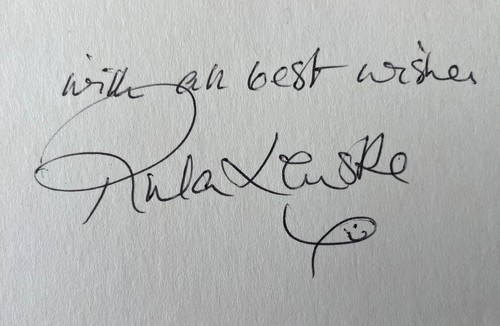 with all best wishes
Rula Lenska